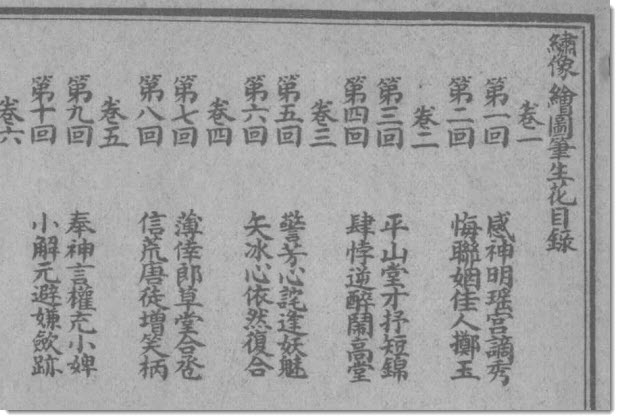 繡像繪圖筆生花目錄
卷一
第一回 感神明瑶宫謫秀
第二回 悔聯姻佳人擲玉
卷二
第三回 平山堂才抒短錦
第四回 肆悖逆醉鬧高堂
卷三
第五回 警芳心詫逢妖魅
第六回 矢冰心依然復合
卷四
第七回 薄倖郎草堂合卺
第八回 信荒唐徒增笑柄
卷五
第九回 奉神言權充小婢
第十回 小解元避嫌歛跡
卷六